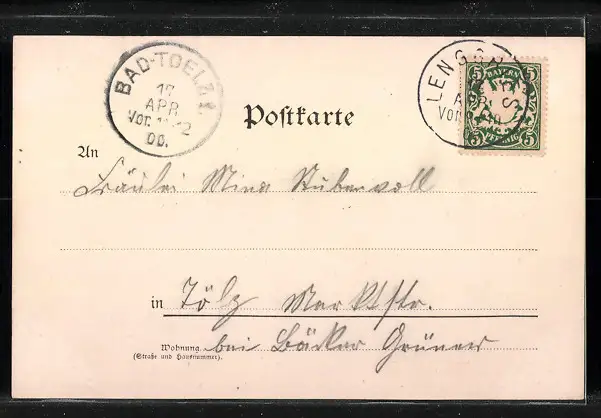 BAD-TOELZ
17
APR.
VOR. 11-12
00.
Postkarte
LENGGRIES
APR.
VOR.
BAYERN
5 5
5 5
PFENNIG
An
Fräulein Mina Stubenvoll
in Tölz Marktstr.
Wohnung bei Bäcker Grüner
(Straße und Hausnummer).